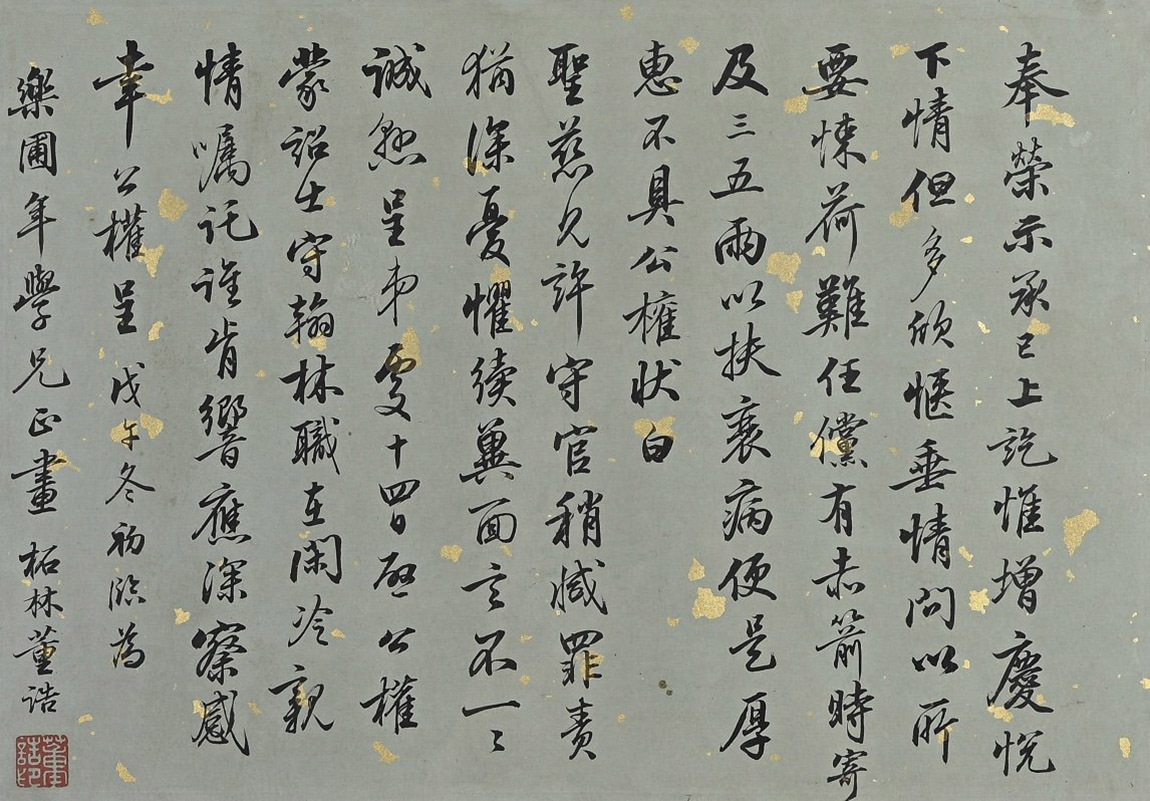 奉榮示承已上訖惟增慶悅
下情但多欣愜垂情問以所
要悚荷難任儻有赤箭時寄
及三五兩以扶衰病便是厚
惠不具公權狀白
聖慈允許守官稍減罪責
猶深憂懼續冀面言不一一
誠懸呈弟處十四日敬公權
蒙詔出守翰林職在閑冷親
情囑託誰肯響應深察感
幸公權呈 戊午冬初臨為
樂圃年學兄正畫 柘林董誥
董誥印